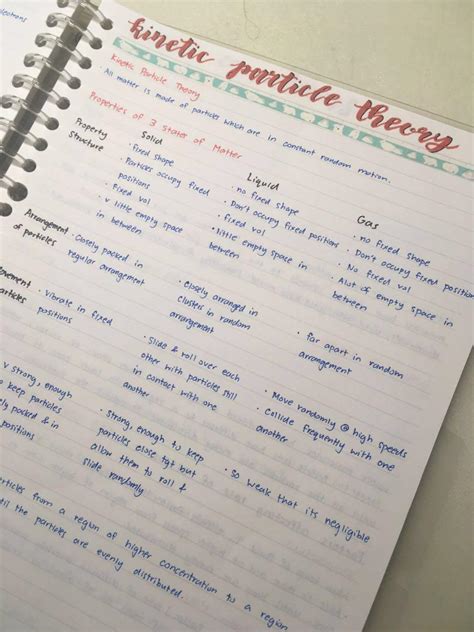 kinetic particle theory
Kinetic Particle Theory
All matter is made of particles which are in constant random motion.
Properties of 3 States of Matter
Property
Solid
Liquid
Gas
Structure
· fixed shape
· Particles occupy fixed
positions
· fixed vol
· v little empty space
in between
· no fixed shape
· Don't occupy fixed positions
· fixed vol
· little empty space in
between
· no fixed shape
· Don't occupy fixed position
· No fixed vol
· Alot of empty space in
between
Arrangement
of particles
· Closely packed in
regular arrangement
· closely arranged in
clusters in random
arrangement
· far apart in random
arrangement
ovement
particles
· Vibrate in fixed
positions
· Slide & roll over each
other with particles still
in contact with one
another
· Move randomly @ high speeds
· Collide frequently with one
another
v strong, enough
to keep particles
packed & in
positions
· strong, enough to keep
particles close tgt but
allow them to roll &
slide randomly
· so weak that its negligible
particles from a region of higher concentration to a region
until the particles are evenly distributed.